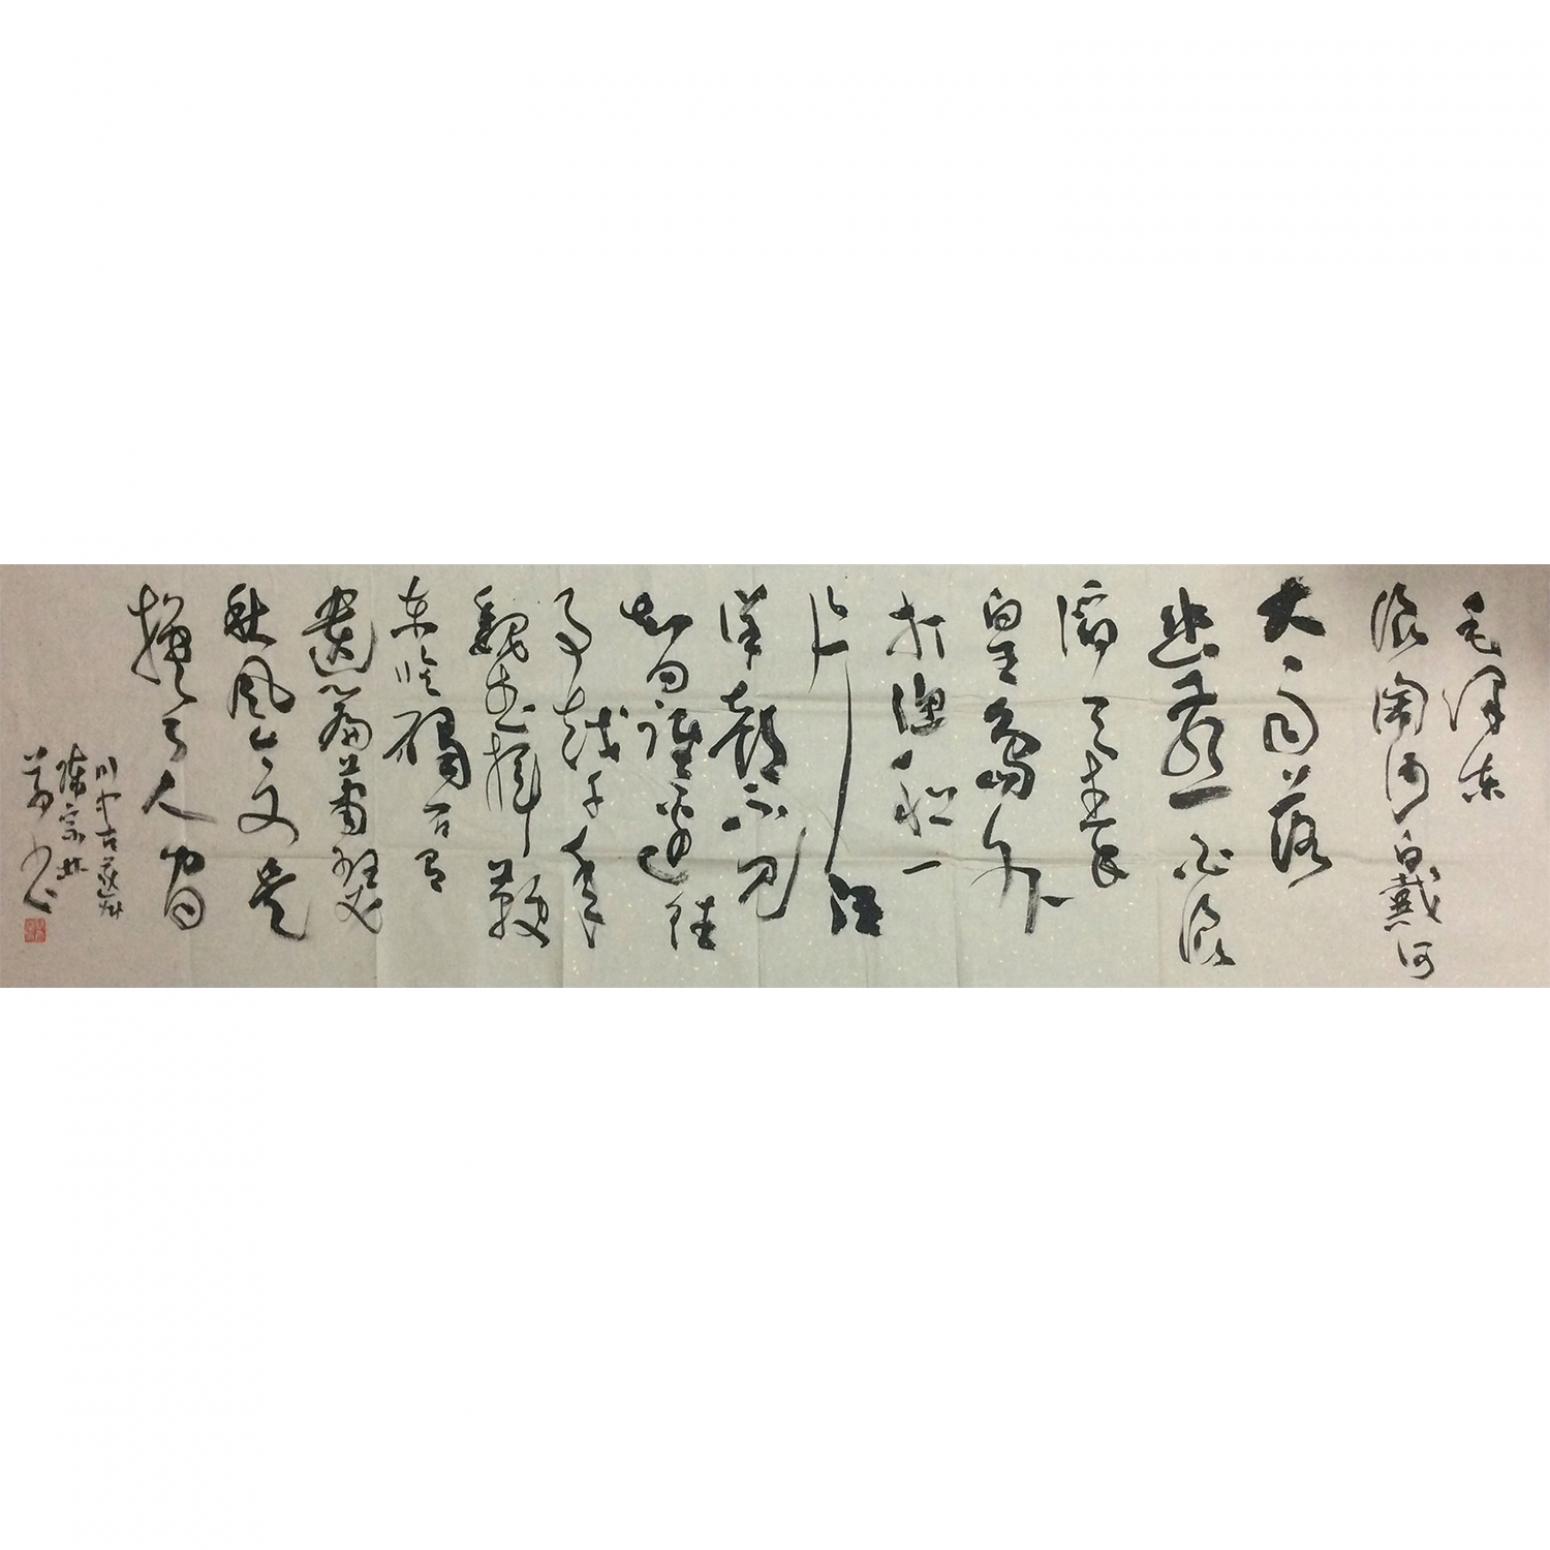 毛泽东
浪淘沙北戴河
大雨落
幽燕白浪
滔天秦
皇島外
打漁船一
片汪
洋都不見
知向誰邊往
事越千年
魏武揮鞭
东临碣石有
遺篇蕭瑟
秋風今又是
換了人間
宗林